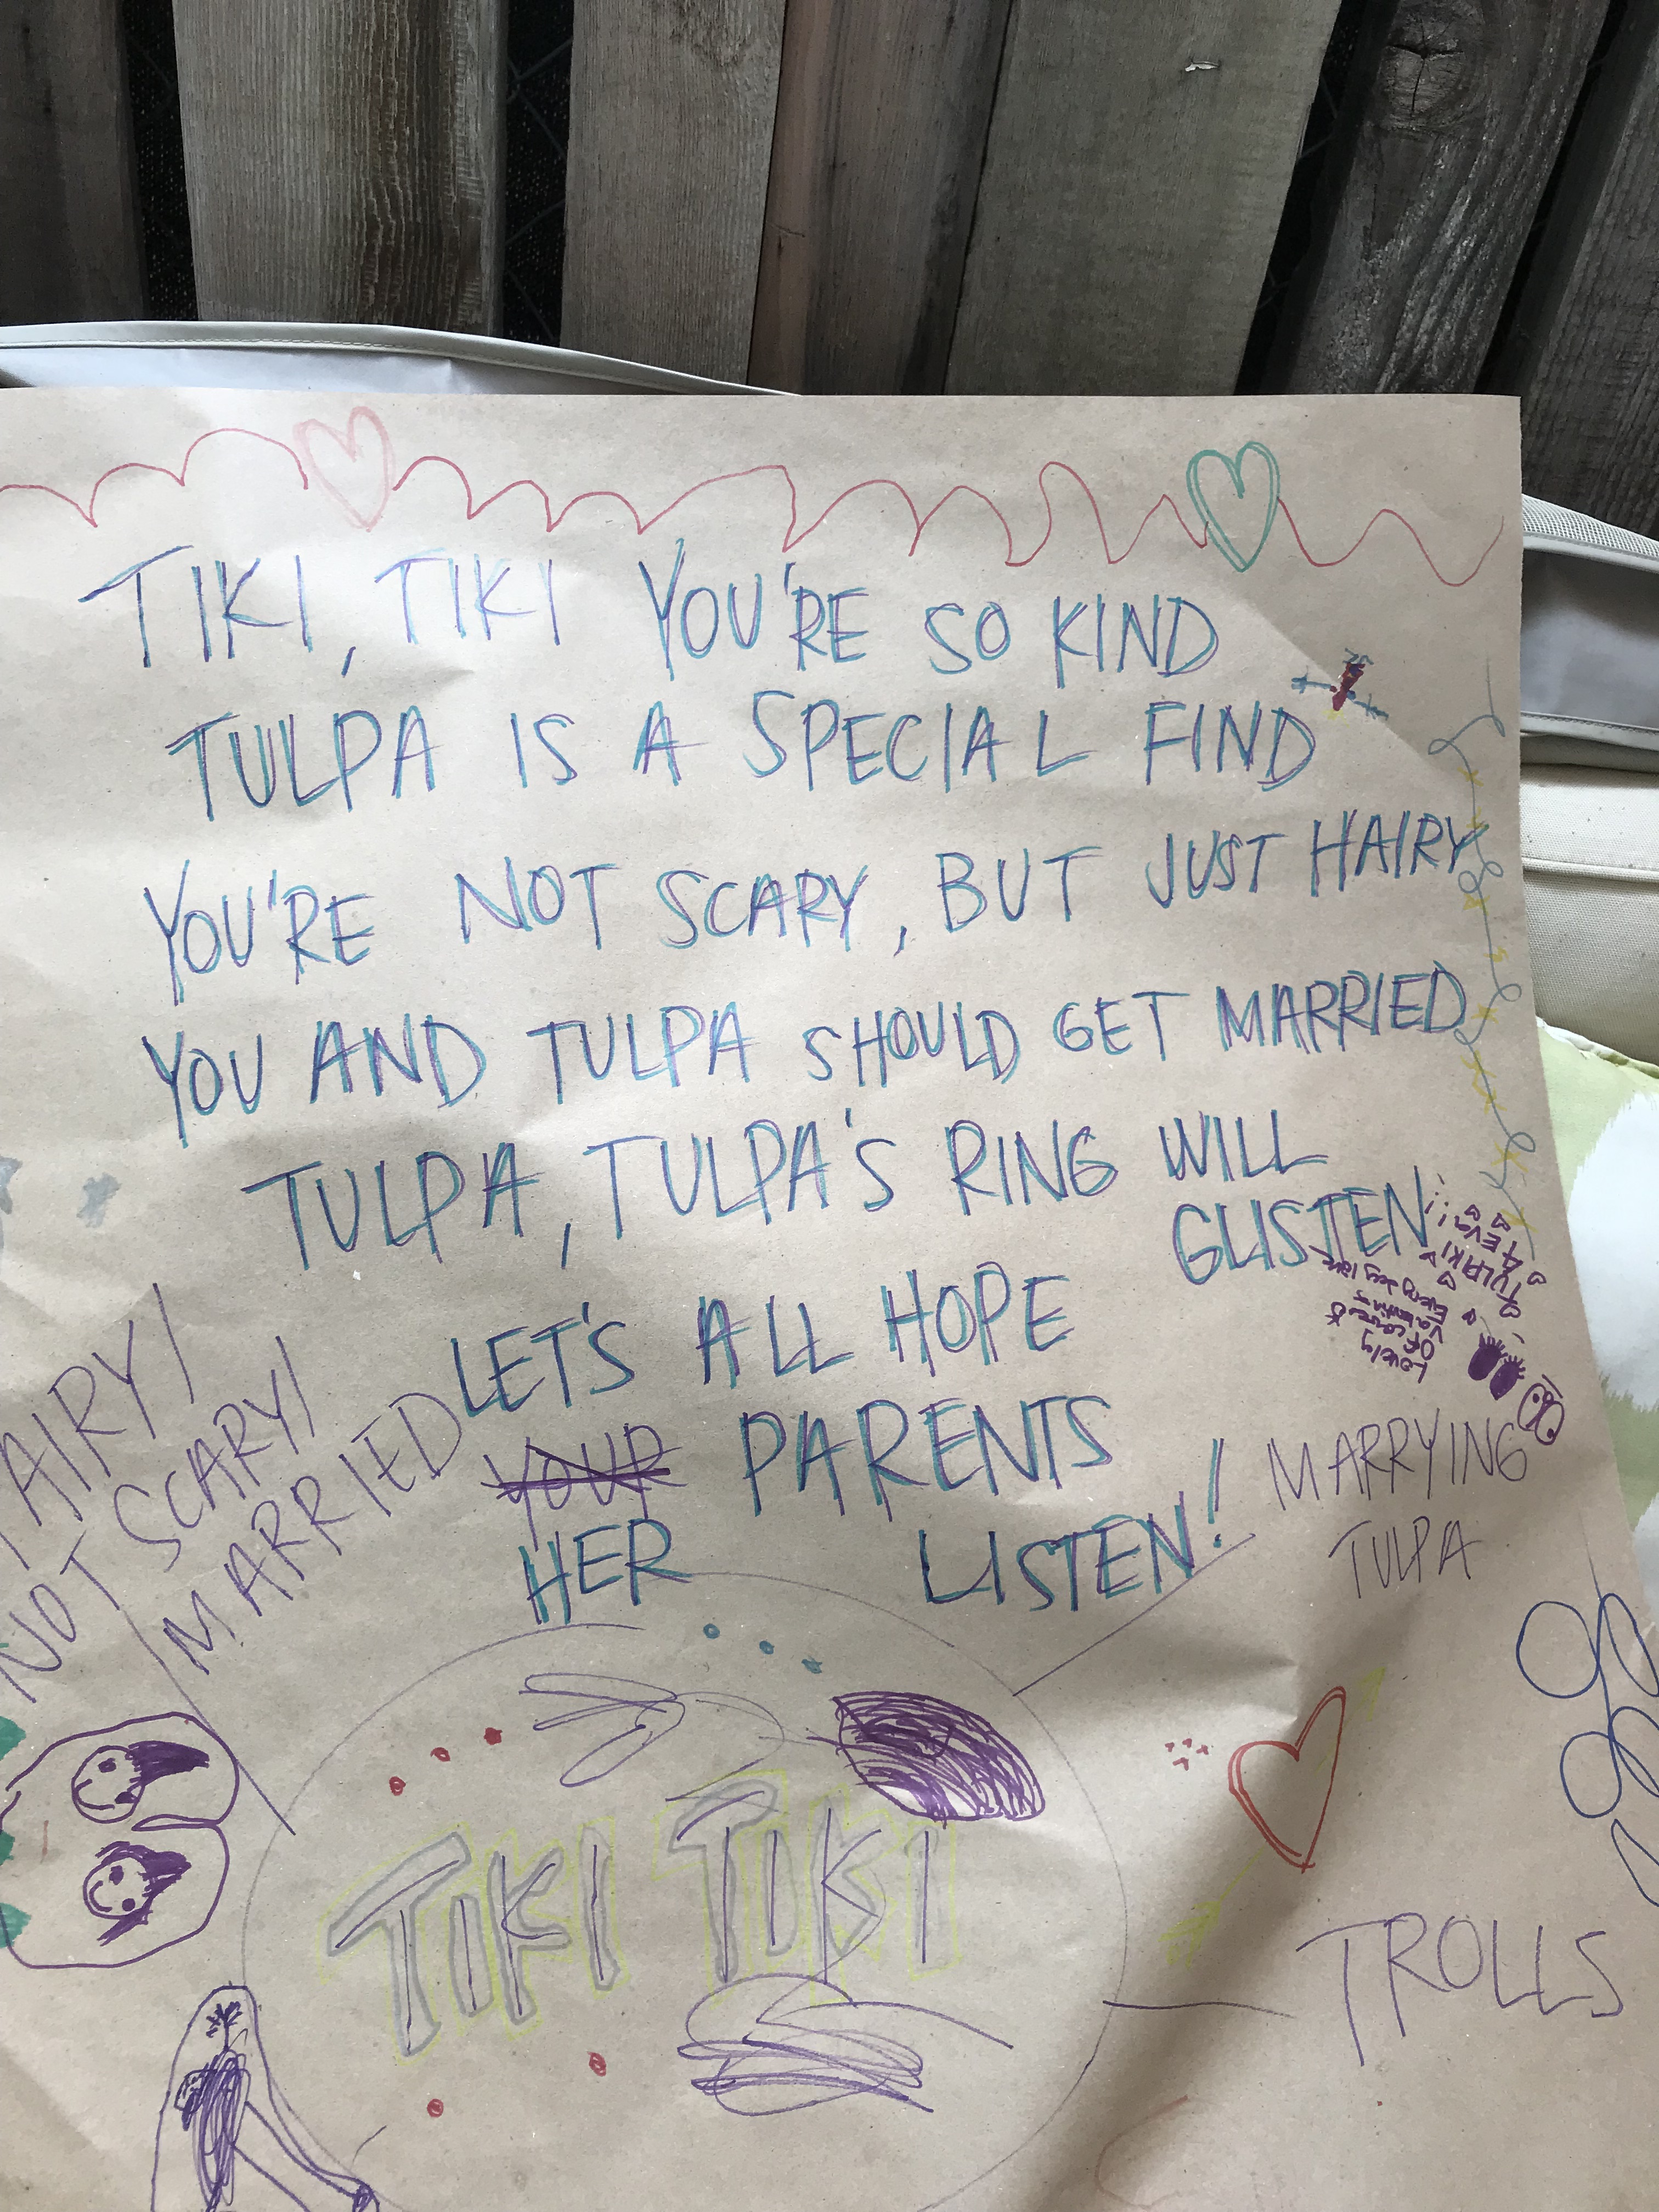 TIKI, TIKI YOU'RE SO KIND
TULPA IS A SPECIAL FIND
YOU'RE NOT SCARY, BUT JUST HAIRY
YOU AND TULPA SHOULD GET MARRIED
TULPA, TULPA'S RING WILL
GLISTEN!
LET'S ALL HOPE
YOUR PARENTS
HER LISTEN!
TULPIKI
4 EVA!!
Lovely
Of course
Valentins
NOT SCARY/
MARRIED
MARRYING
TULPA
TIKI TIKI
TROLLS